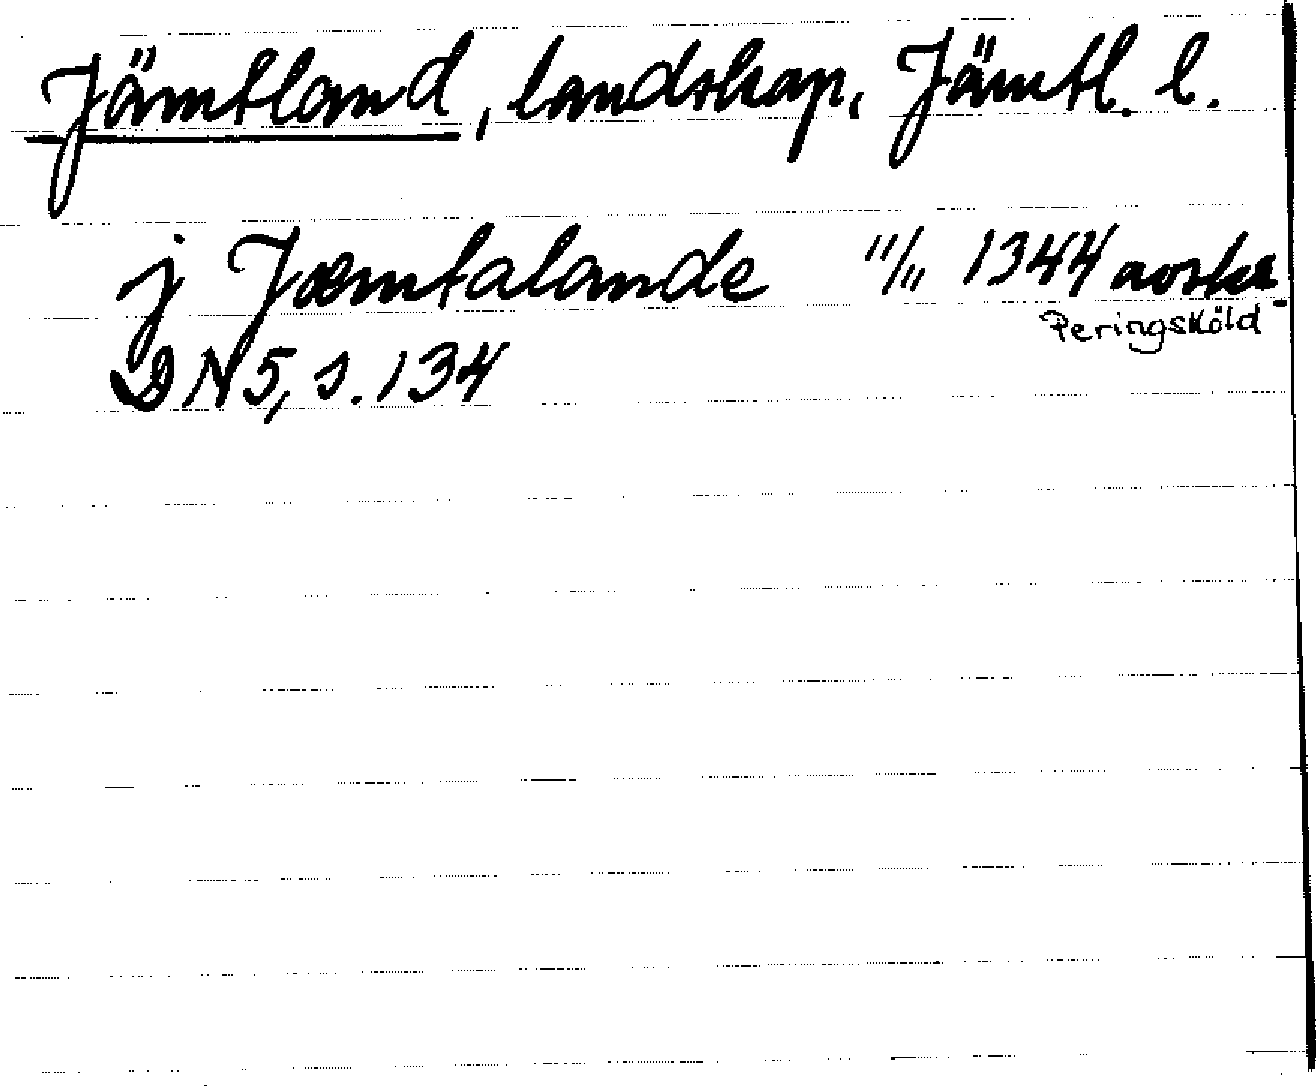 Jämtland, landskap, Jämtl. l.
j Jæmtalande 11/11 1344 avskr.
Peringsköld
DN 5, s. 134